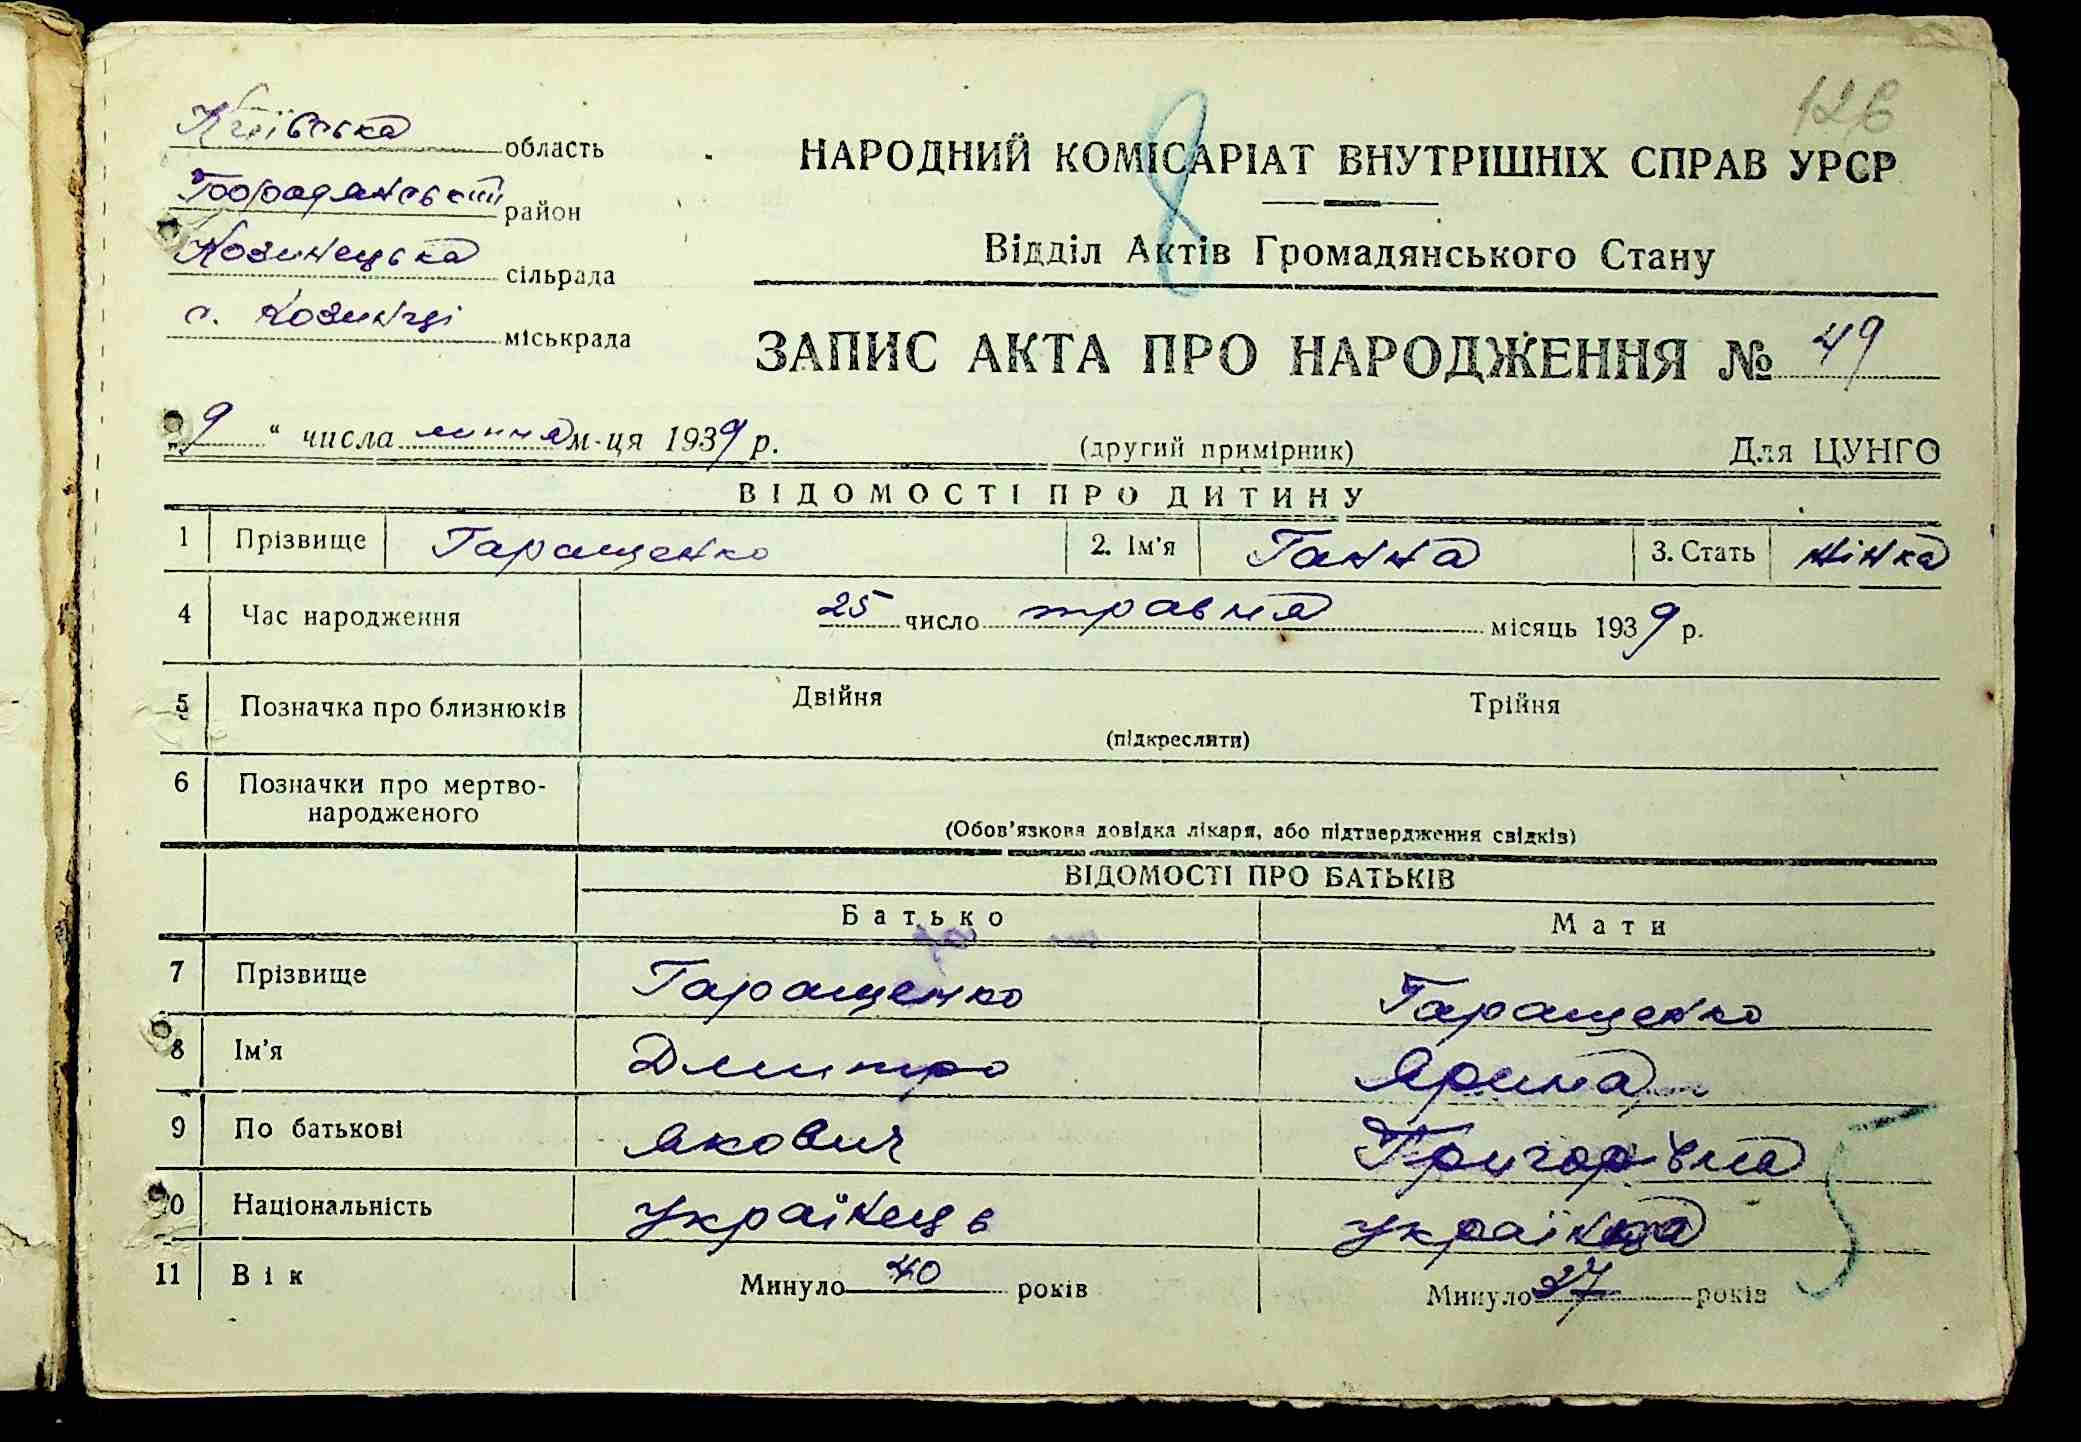 126
Київська область
Бородянський район
Козинецька сільрада
с. Козинці міськрада
НАРОДНИЙ КОМІСАРІАТ ВНУТРІШНІХ СПРАВ УРСР
8
Відділ Актів Громадянського Стану
ЗАПИС АКТА ПРО НАРОДЖЕННЯ № 49
„9“ числа липня м-ця 1939 р. (другий примірник) Для ЦУНГО
ВІДОМОСТІ ПРО ДИТИНУ
1 Прізвище Гаращенко 2. Ім'я Ганна 3. Стать жінка
4 Час народження 25 число травня місяць 1939 р.
5 Позначка про близнюків Двійня Трійня
(підкреслити)
6 Позначки про мертво-
народженого
(Обов'язкова довідка лікаря, або підтвердження свідків)
ВІДОМОСТІ ПРО БАТЬКІВ
Батько Мати
7 Прізвище Гаращенко Гаращенко
8 Ім'я Дмитро Ярина
9 По батькові Якович Григорівна
10 Національність українець українка
11 Вік Минуло 40 років Минуло 37 років
5